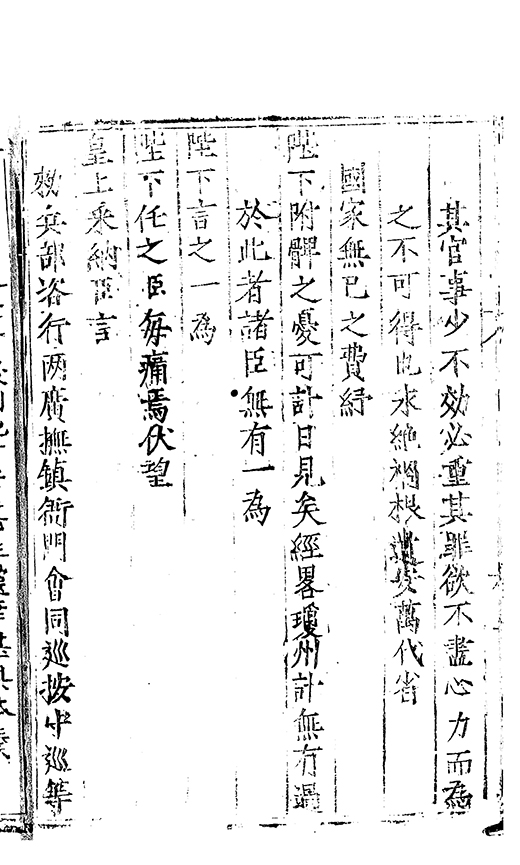 其官事少不効必重其罪欲不盡心力而為
之不可得也永絶禍根達安萬代省
國家無已之費紓
陛下附髀之憂可計日見矣經畧瓊州計無有過
於此者諸臣無有一為
陛下言之一為
陛下任之臣每痛焉伏望
皇上采納臣言
勑兵部咨行两廣撫鎮衙門會同巡按守巡等